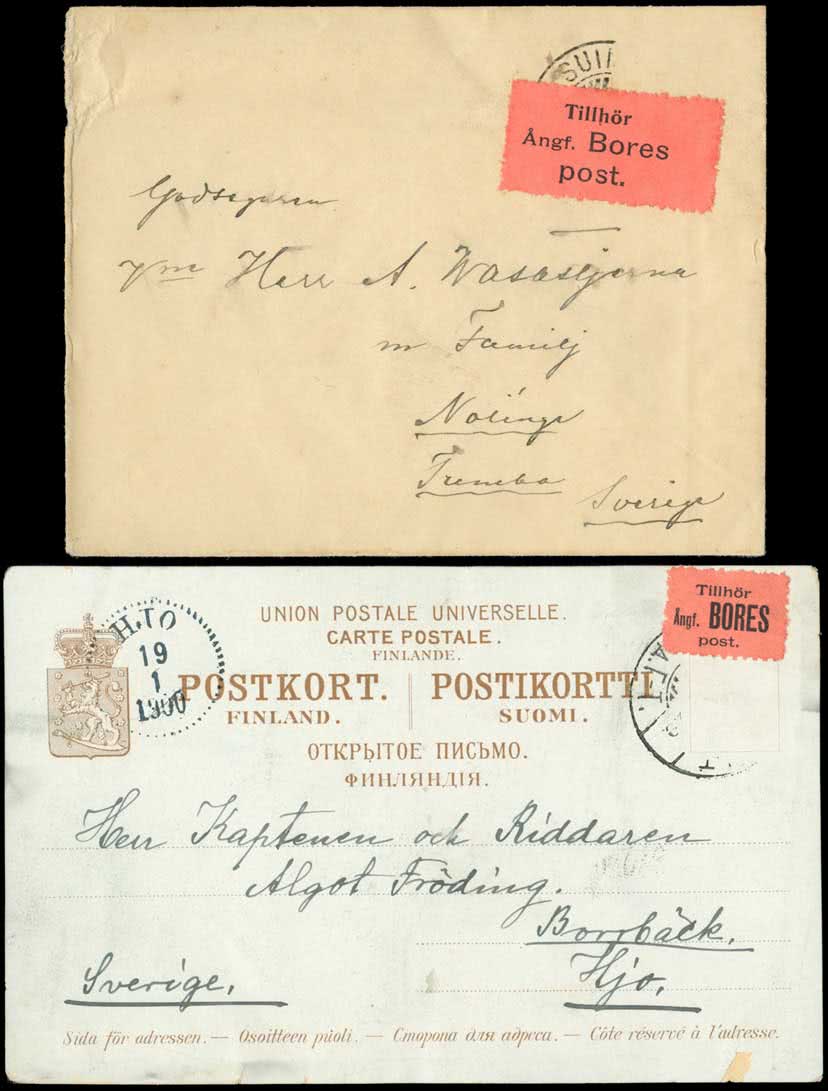 SUII
Tillhör
Ångf. Bores
post.
Godsegaren
Herr A. Wasastjerna
m Familj
Nolinge
Sverige
HJO
19
1
1900
UNION POSTALE UNIVERSELLE.
CARTE POSTALE.
FINLANDE.
POSTKORT. POSTIKORTTI.
FINLAND. SUOMI.
ОТКРЫТОЕ ПИСЬМО.
ФИНЛЯНДІЯ.
Tillhör
Ångf. BORES
post.
Herr Kaptenen och Riddaren
Algot Fröding.
Borrbäck.
Sverige. Hjo.
Sida för adressen. — Osoitteen puoli. — Сторона для адреса. — Côte réservé à l'adresse.